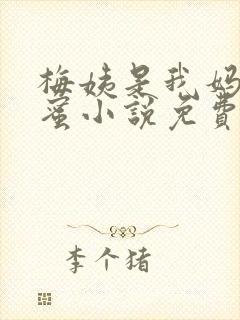 梅姨是我妈
蜜小説免費
李个猪